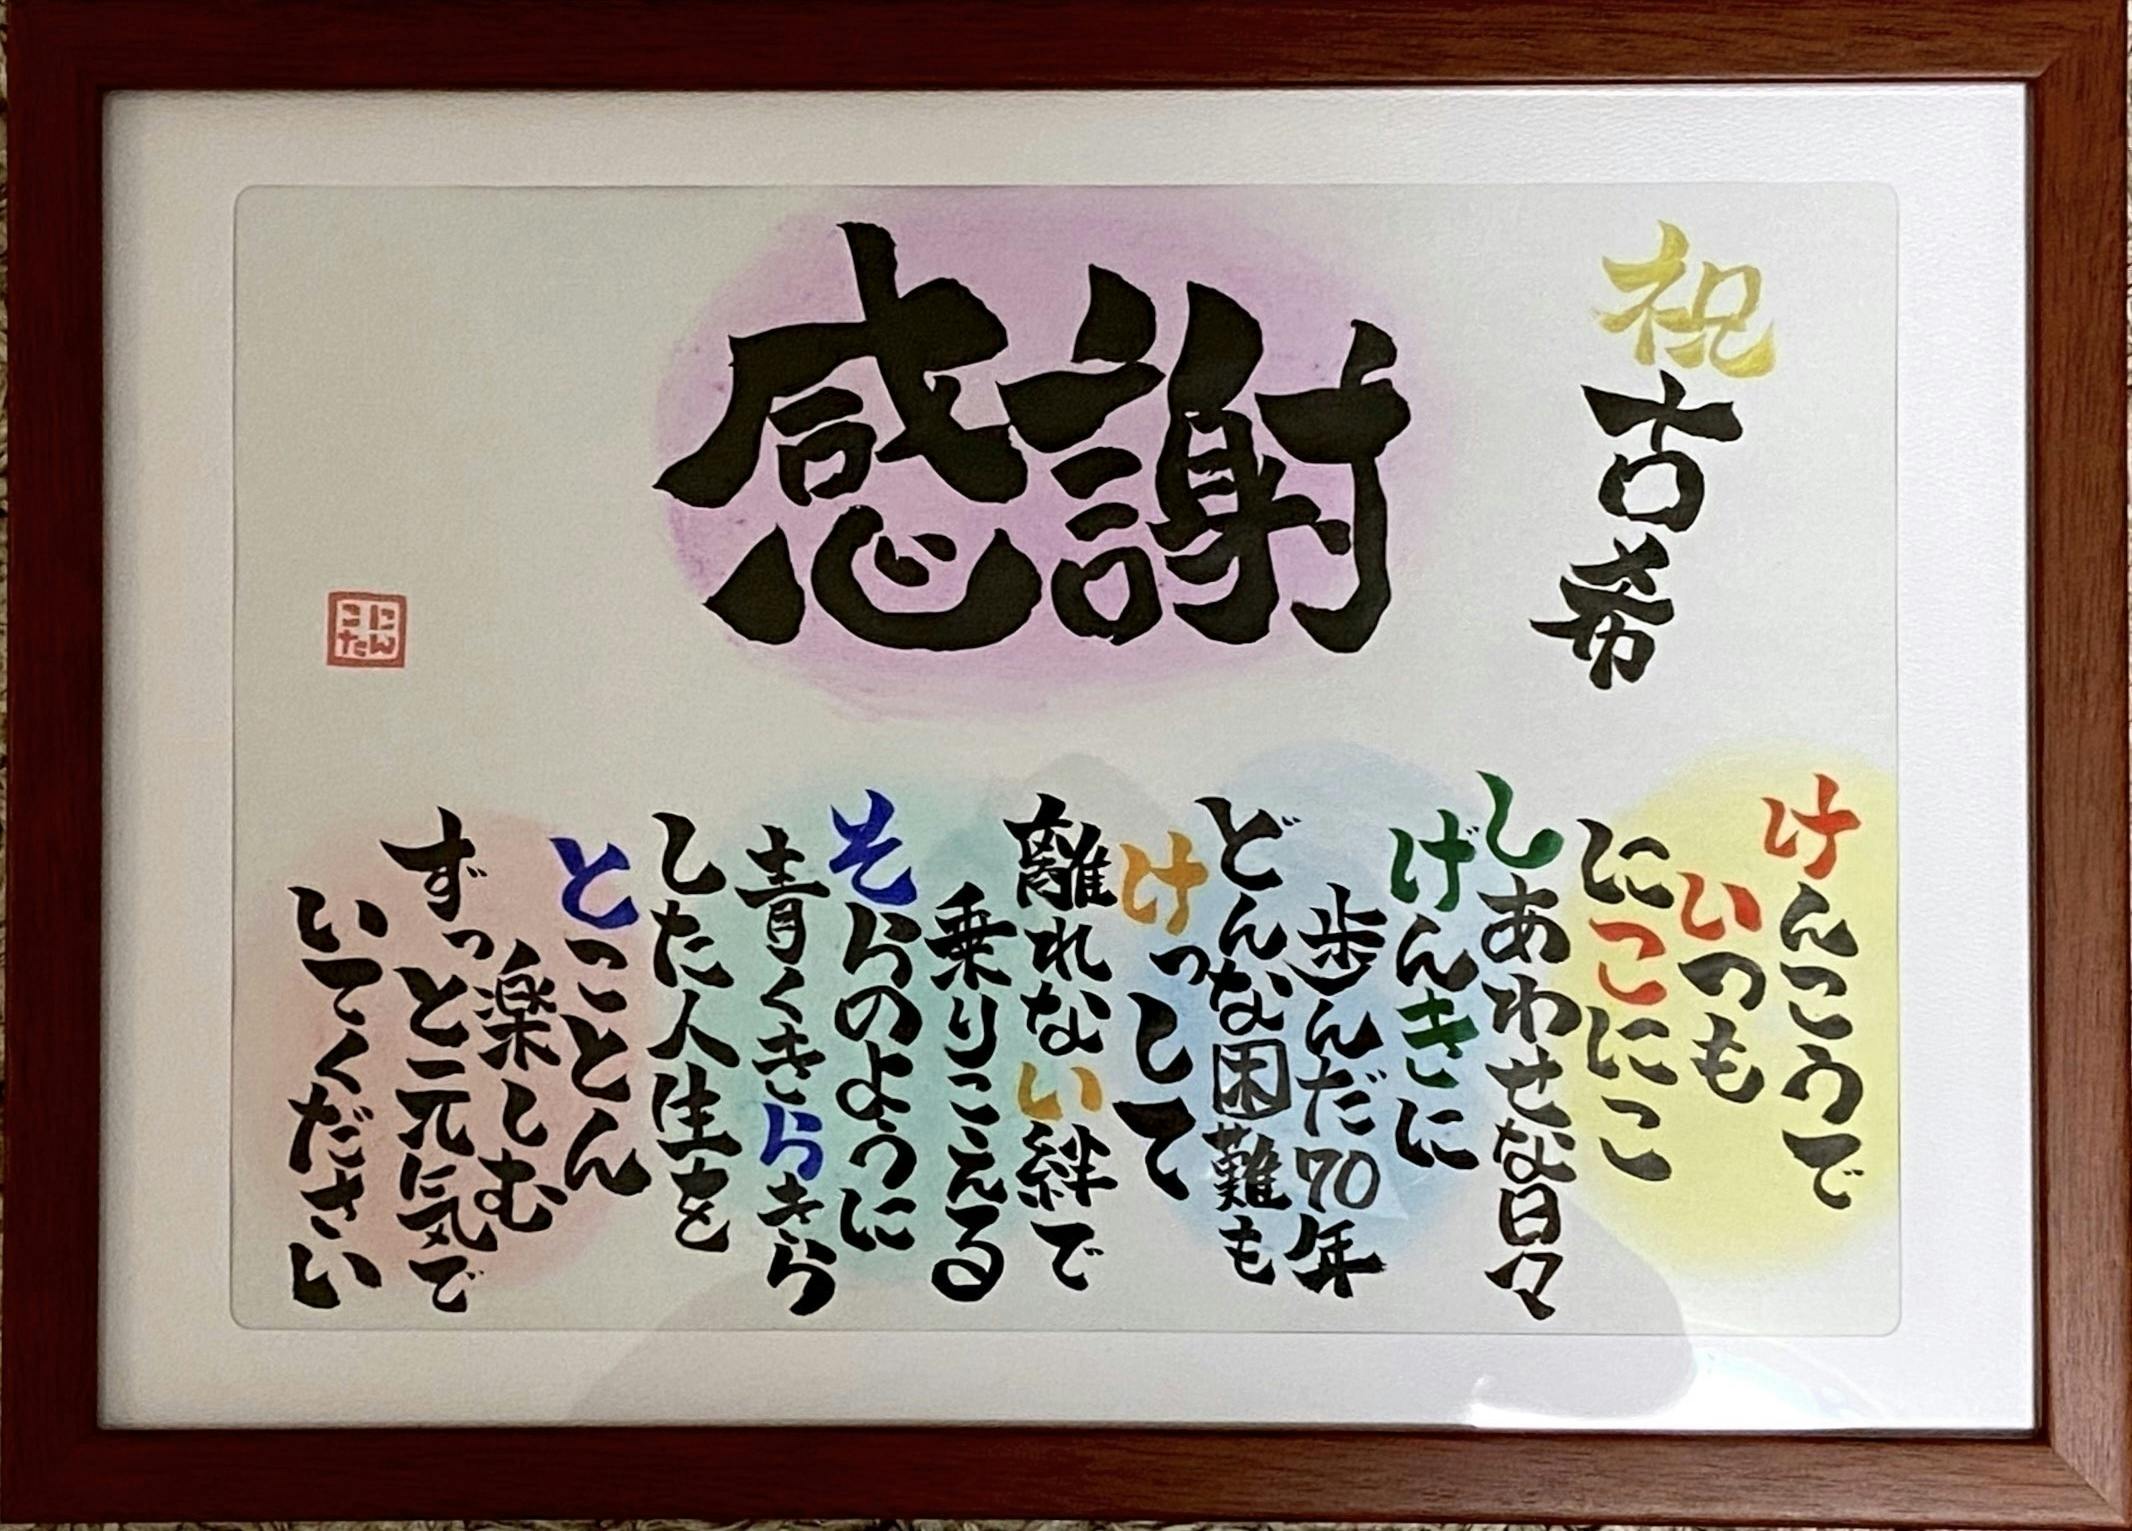 祝古希
感謝
けんこうで
いつも
にこにこ
しあわせな日々
げんきに
歩んだ70年
どんな困難も
けっして
離れない絆で
乗りこえる
そらのように
青くきらきら
した人生を
とことん
楽しむ
ずっと元気で
いてください
にん
こた